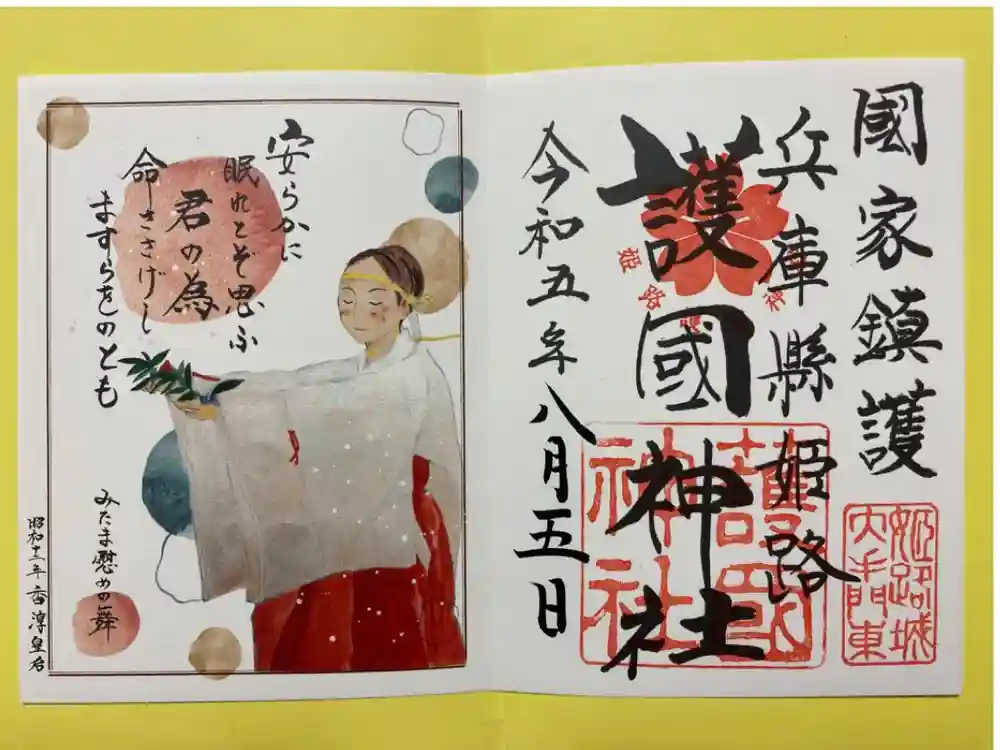 國家鎮護
兵庫縣姫路
護國神社
令和五年八月五日
姫路
神
護國
神社
姫路城
大手門東
安らかに
眠れとぞ思ふ
君の為
命ささげし
ますらをのとも
みたま慰めの舞
昭和十二年 香淳皇后